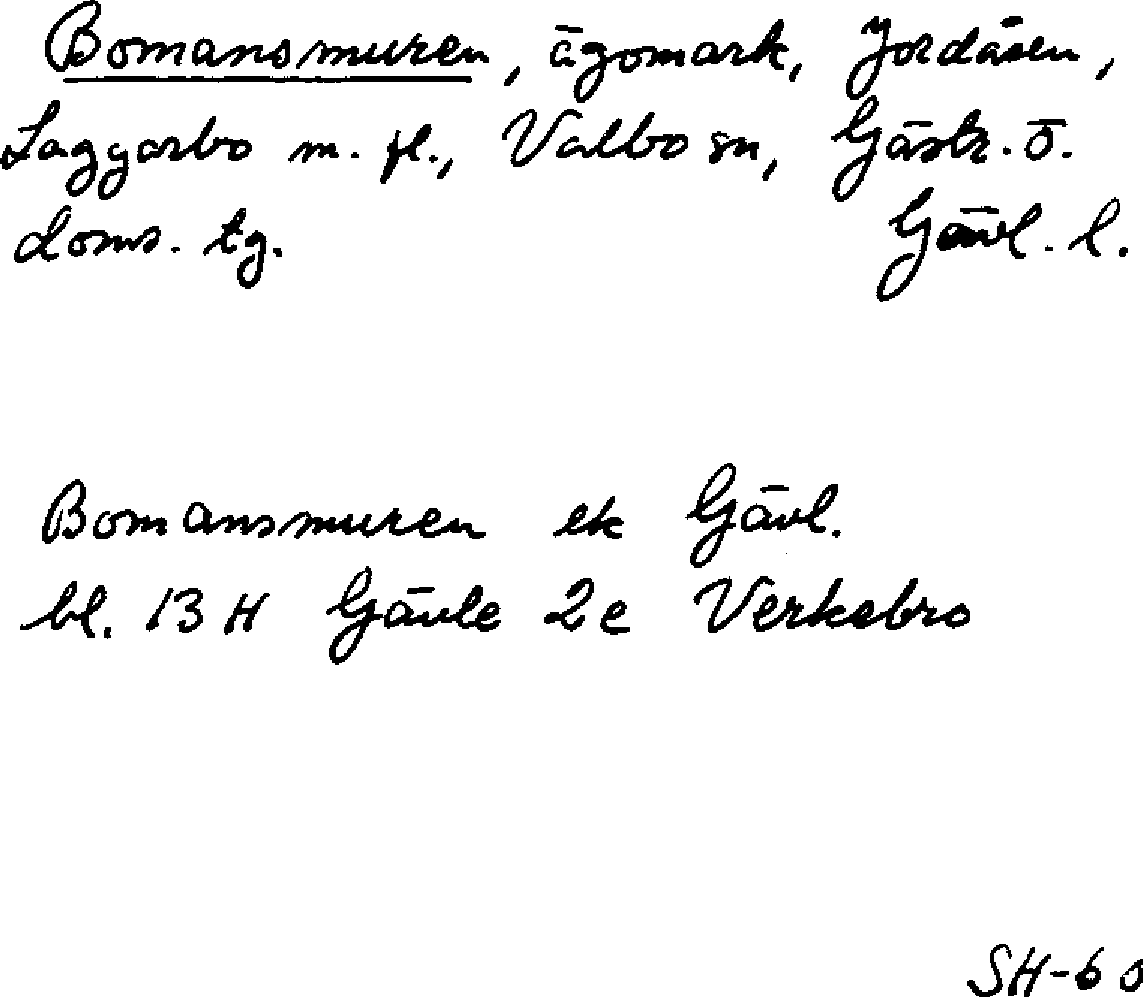 Bomansmuren, ägomark, Jordåsen,
Laggarbo m. fl., Valbo sn, Gästr. ö.
doms. tg. Gävl. l.
Bomansmuren ek Gävl.
bl. 13 H Gävle 2e Verkebro
SH-60